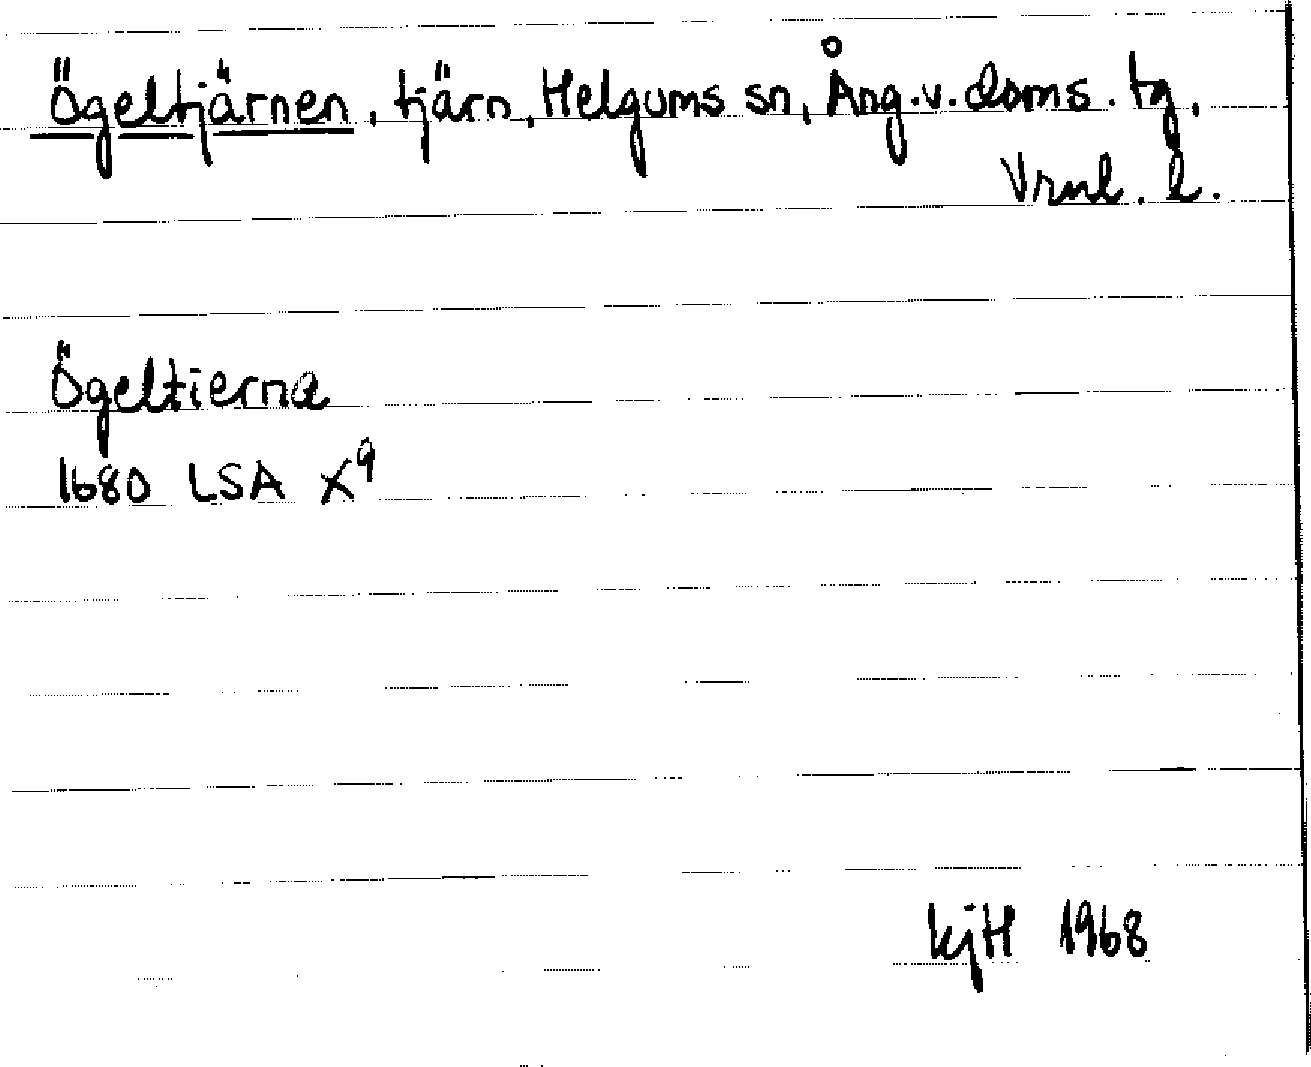 Ögeltjärnen, tjärn, Helgums sn, Ång.v.doms. tg,
Vrnl. l.
Ögeltierna
1680 LSA X9
kjH 1968